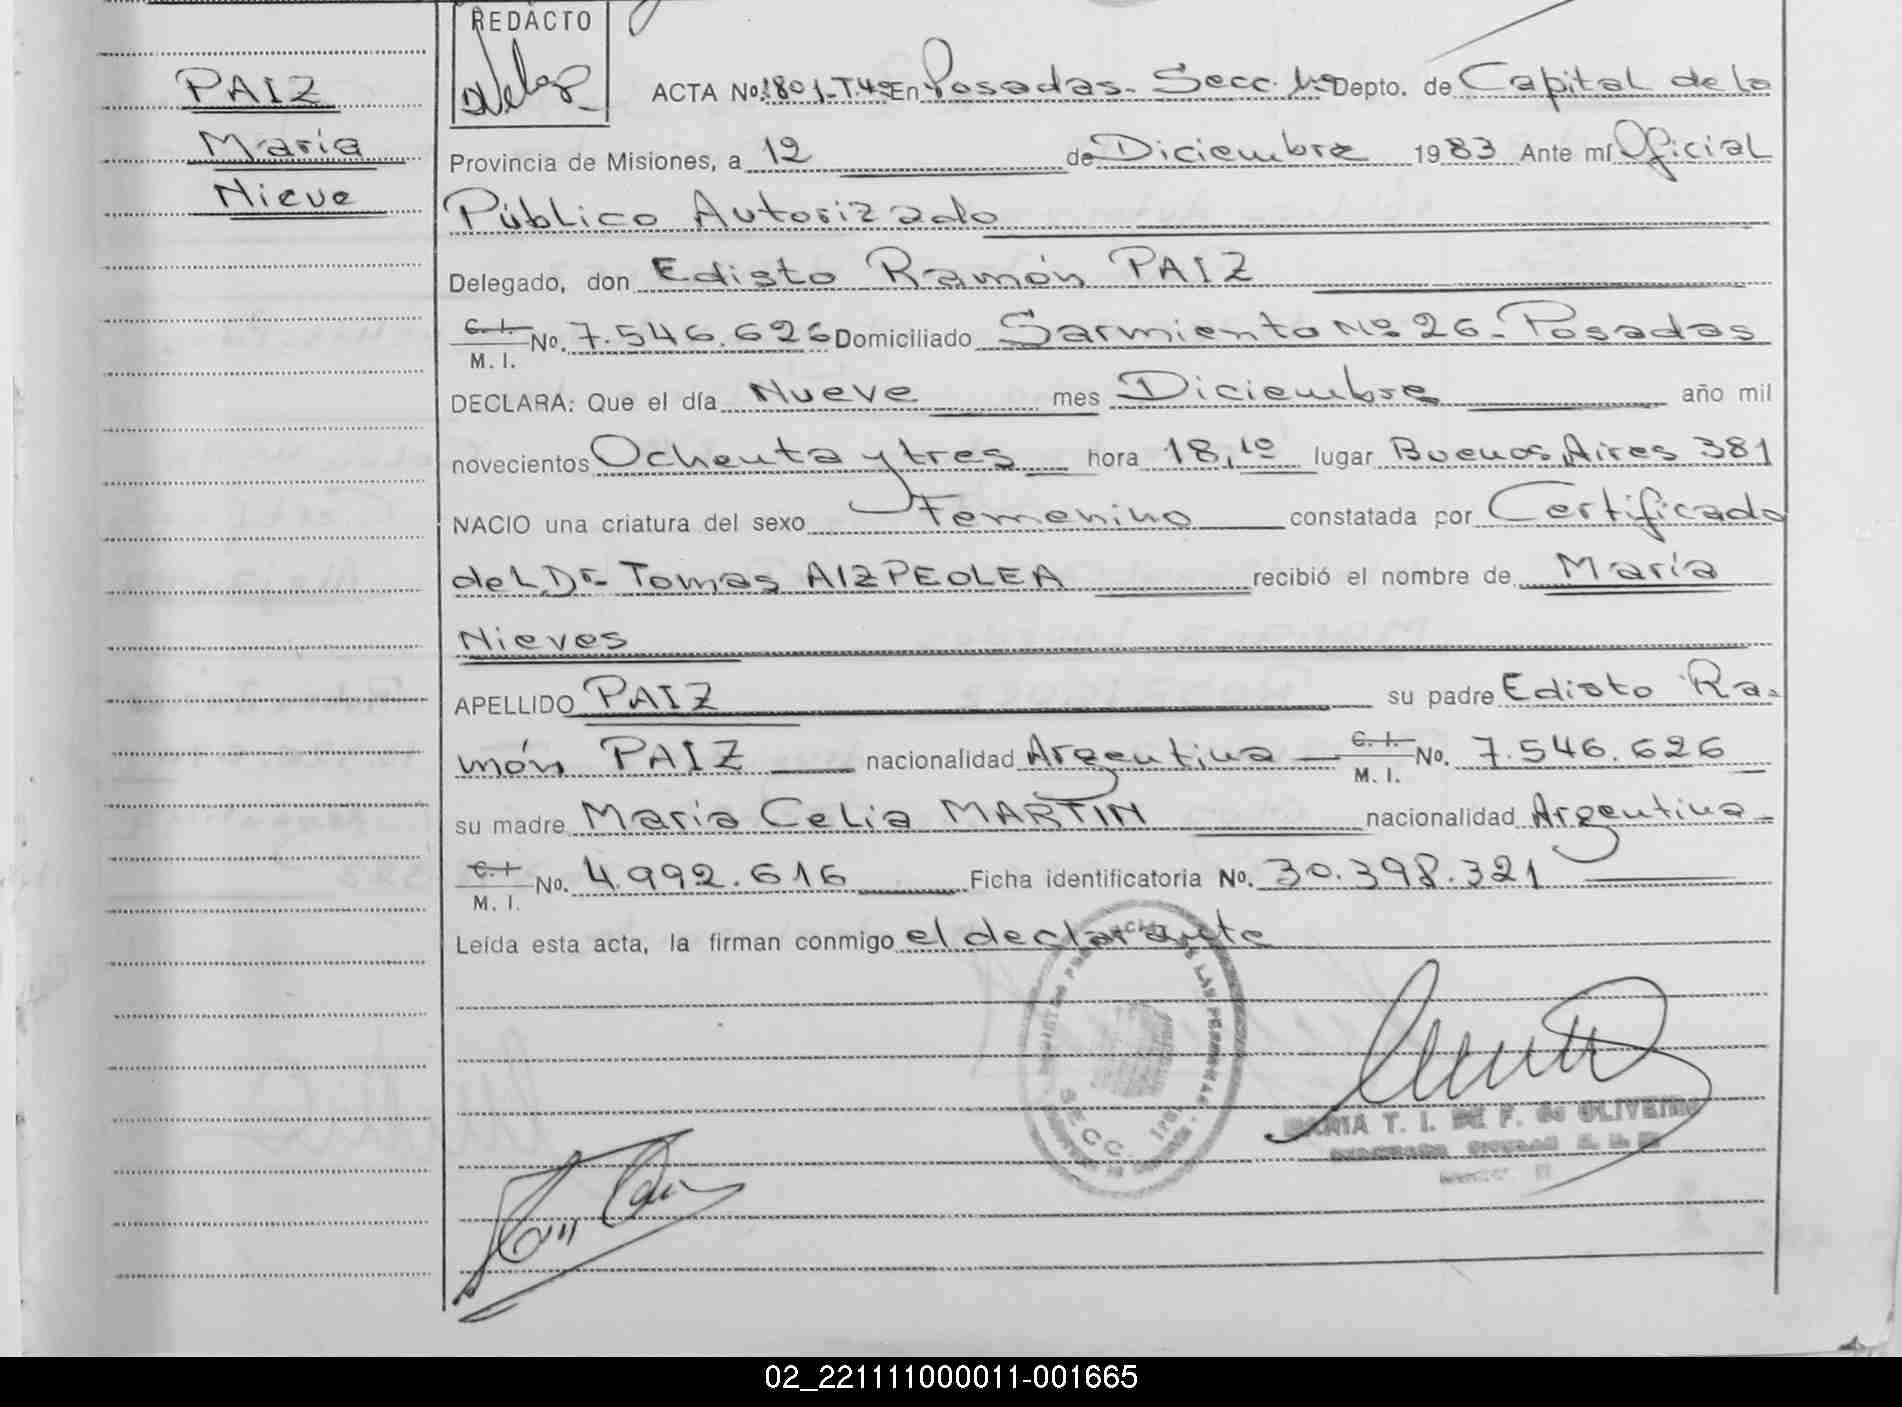 REDACTO
PAIZ
María
Nieve
ACTA No. 1801-T.4º En Posadas. Secc. 1ª Depto. de Capital de la
Provincia de Misiones, a 12 de Diciembre 1983 Ante mí Oficial
Público Autorizado
Delegado, don Edisto Ramón PAIZ
C. I. M. I. No. 7.546.626 Domiciliado Sarmiento Nº 26 - Posadas
DECLARA: Que el día Nueve mes Diciembre año mil
novecientos Ochenta y tres hora 18,10 lugar Buenos Aires 381
NACIO una criatura del sexo Femenino constatada por Certificado
del Dr. Tomas AIZPEOLEA recibió el nombre de María
Nieves
APELLIDO PAIZ su padre Edisto Ra-
món PAIZ nacionalidad Argentina C. I. M. I. No. 7.546.626
su madre María Celia MARTIN nacionalidad Argentina
C. I. M. I. No. 4.992.616 Ficha identificatoria No. 30.398.321
Leída esta acta, la firman conmigo el declarante
LAS PERSONAS
SECC. 1ª
MARIA T. I. DE F. de OLIVEIRA
02_221111000011-001665